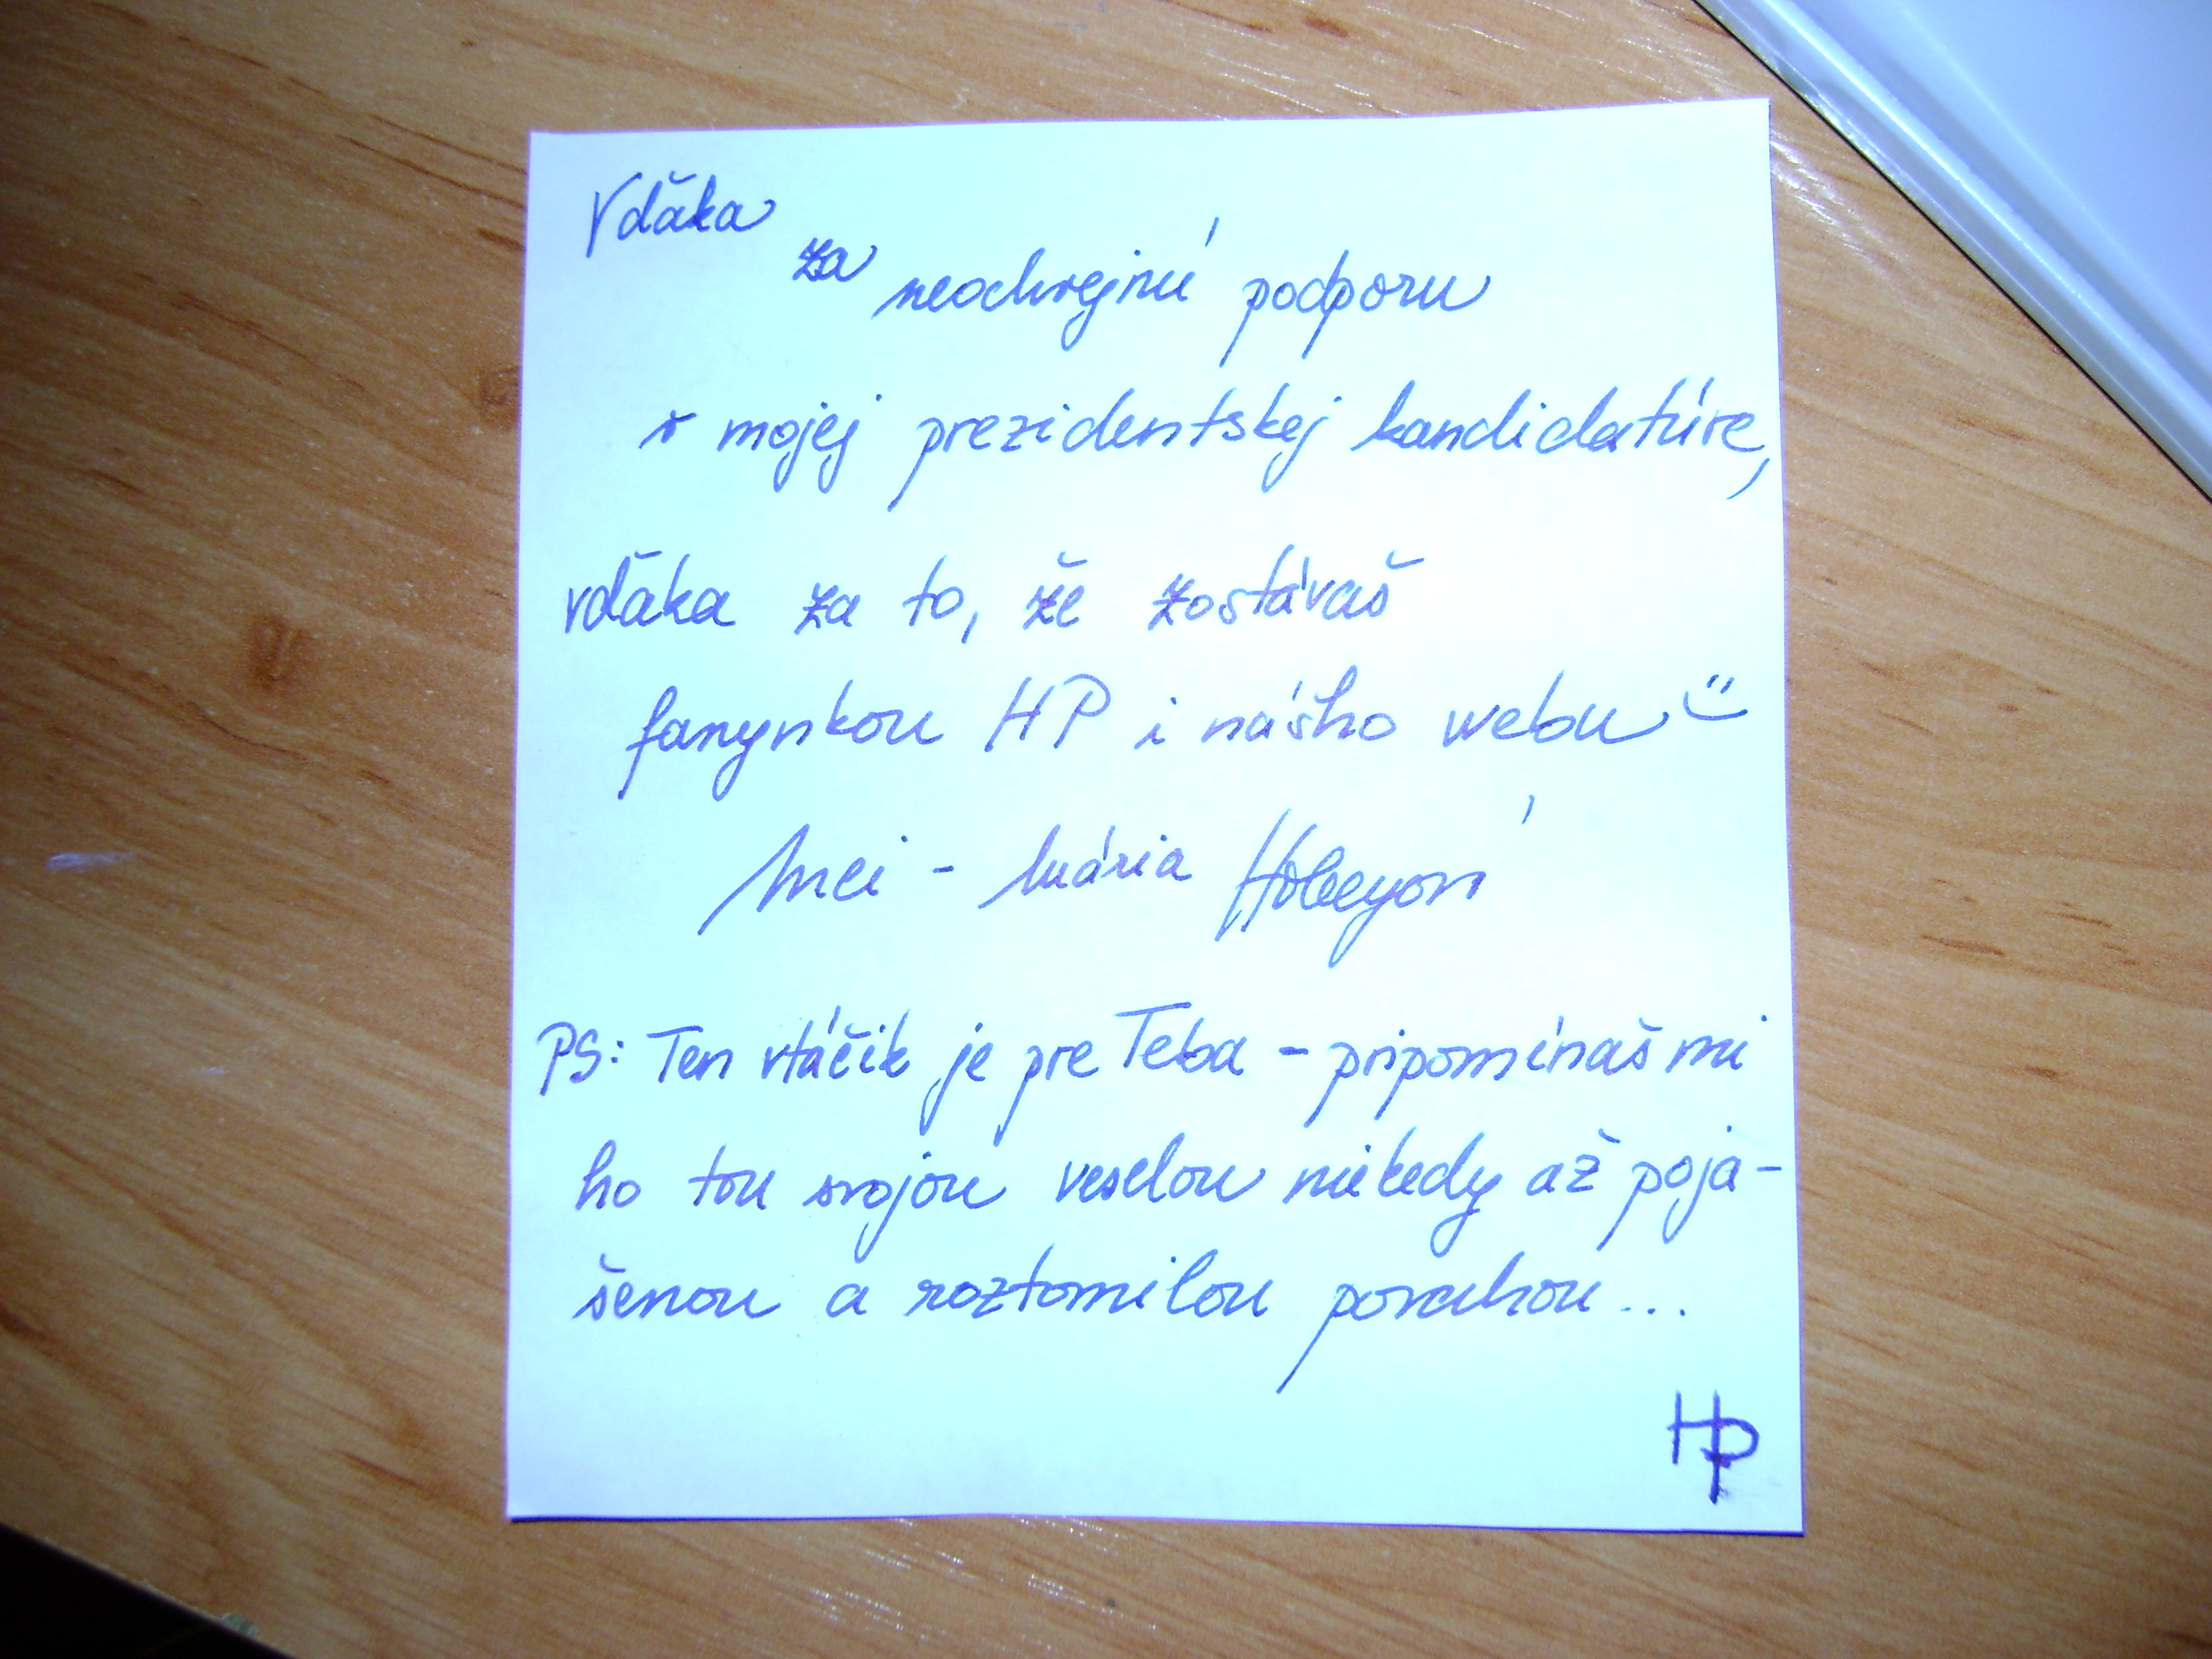 Vďaka za neochvejnú podporu
v mojej prezidentskej kandidatúre,
vďaka za to, že zostávaš
fanynkou HP i nášho webu
- Mária
PS: Ten vtáčik je pre Teba - pripomínaš mi
ho tou svojou veselou niekedy až poja-
šenou a roztomilou povahou...
HP